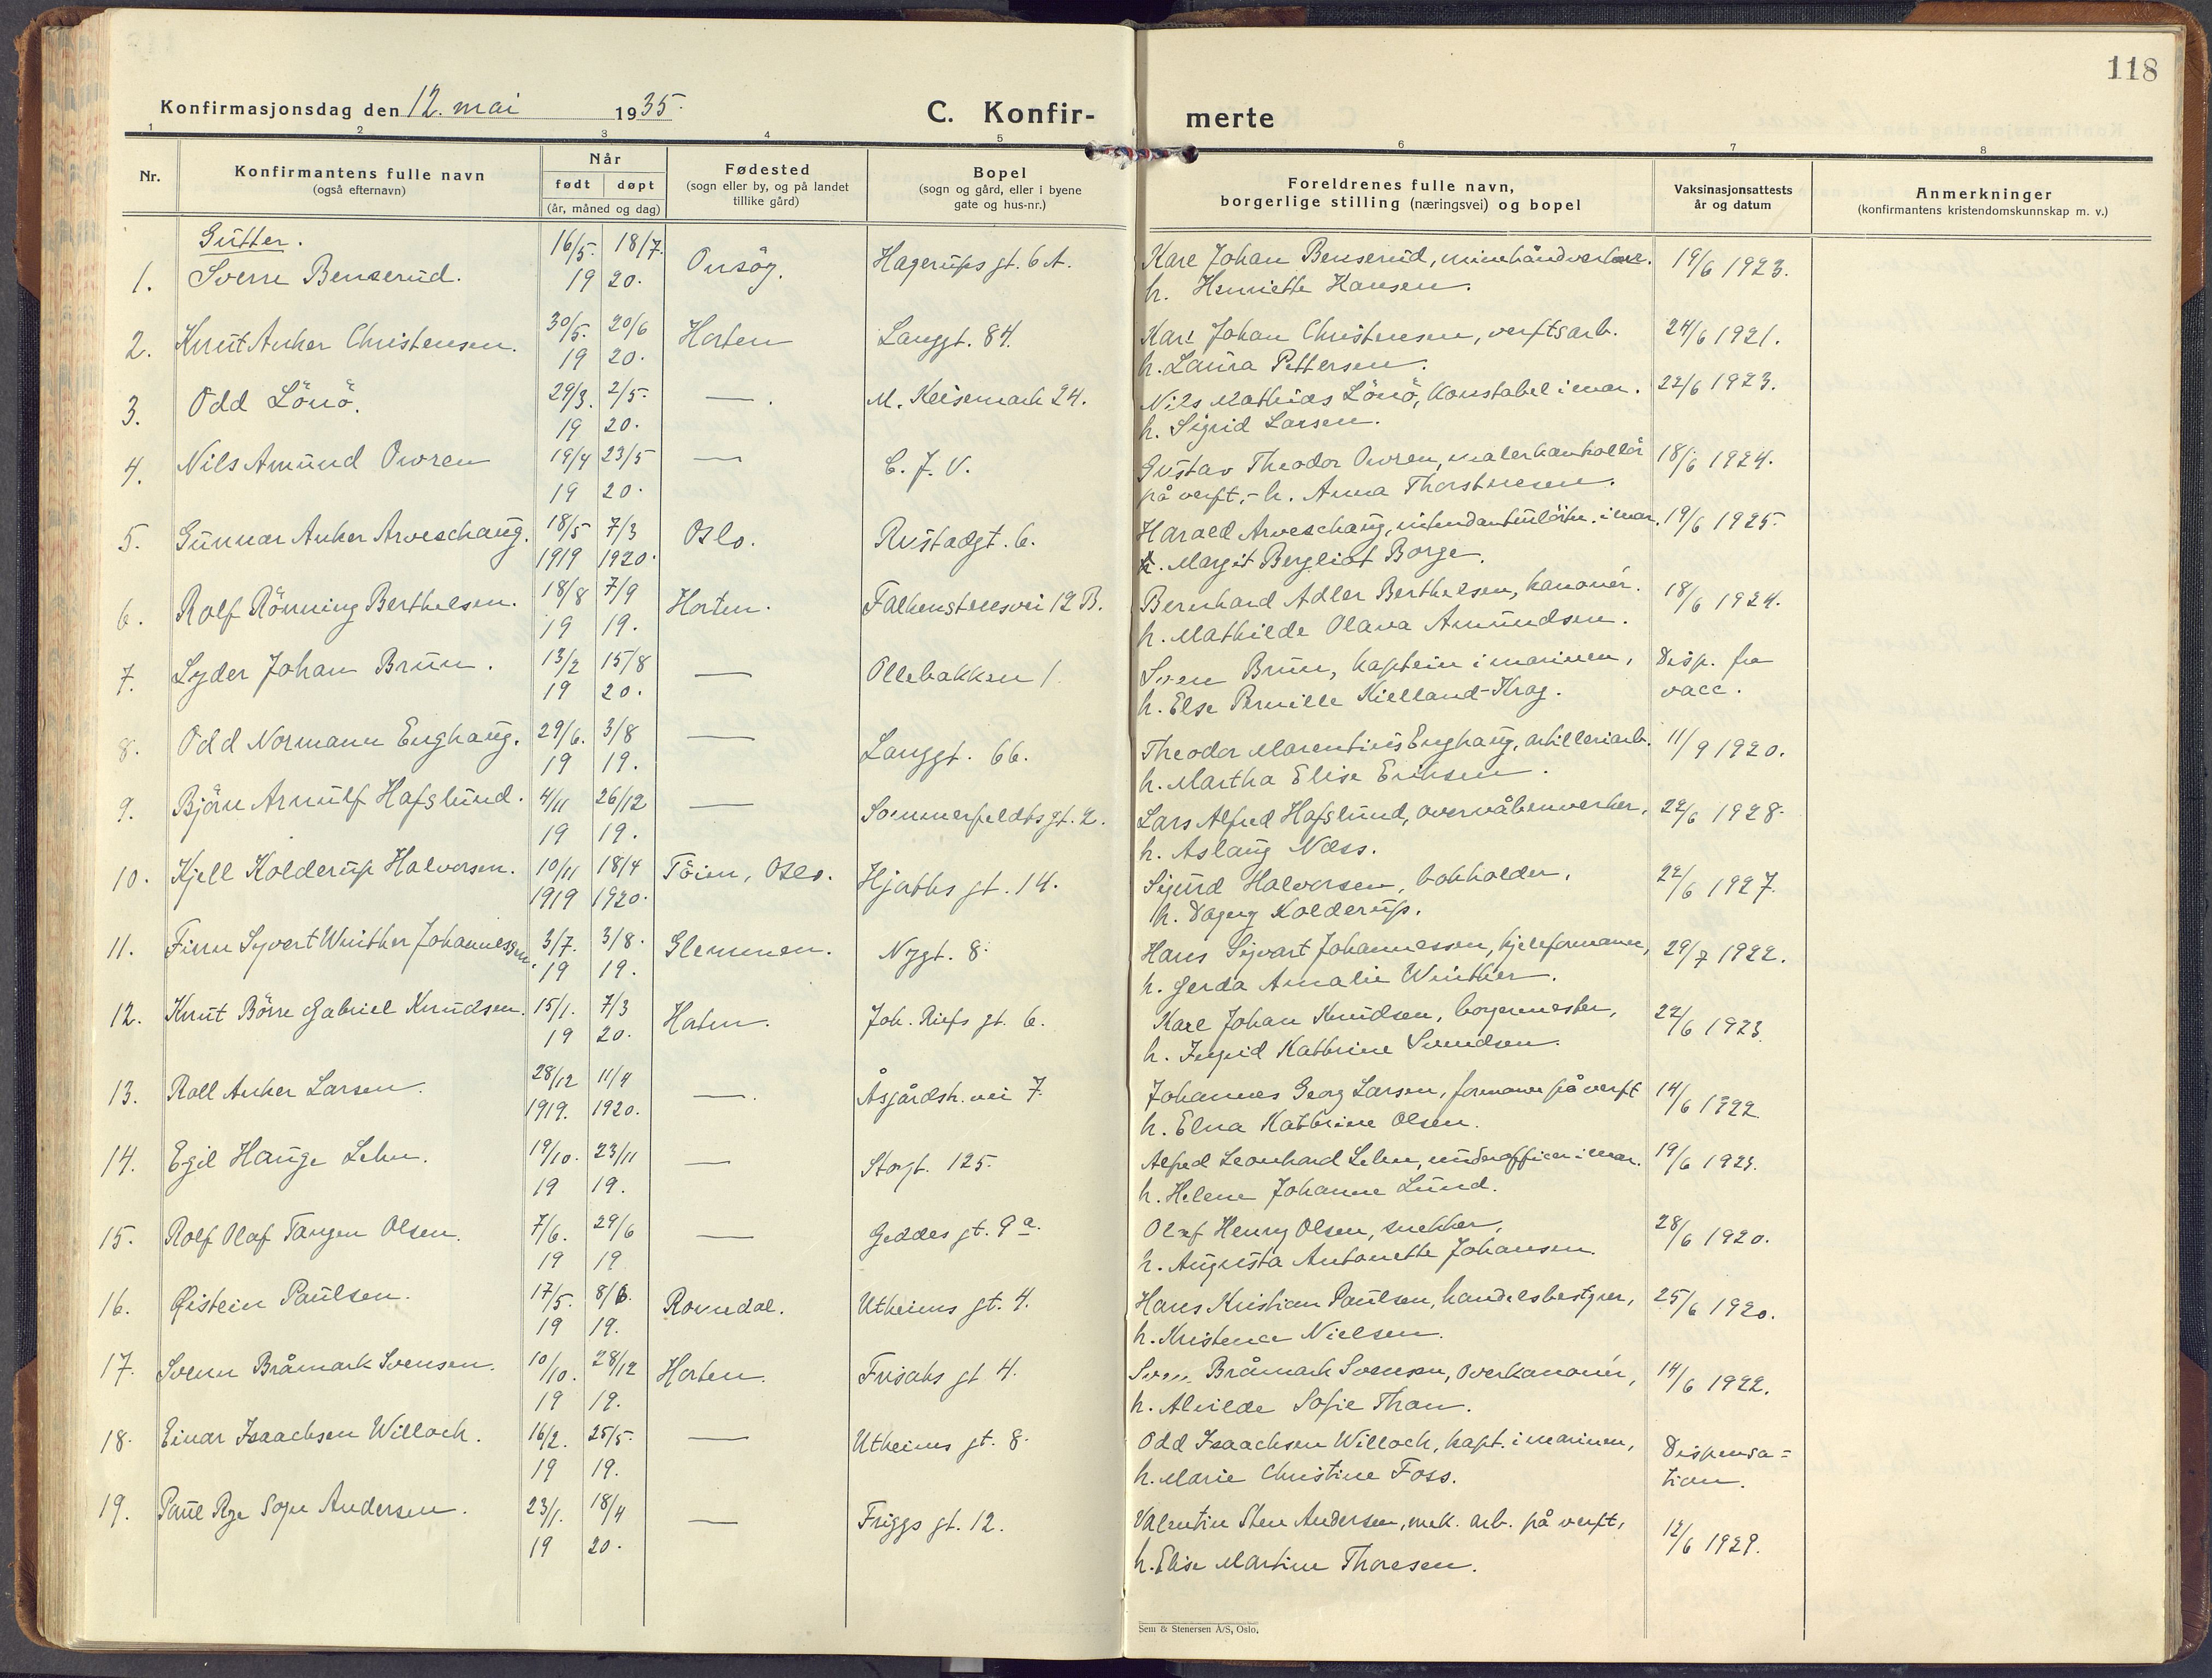 118
Konfirmasjonsdag den 12. mai 1935.
C. Konfir- merte
1 2 3 4 5 6 7 8
Nr.
Konfirmantens fulle navn
(også efternavn)
Når
født døpt
(år, måned og dag)
Fødested
(sogn eller by, og på landet
tillike gård)
Bopel
(sogn og gård, eller i byene
gate og hus-nr.)
Foreldrenes fulle navn,
borgerlige stilling (næringsvei) og bopel
Vaksinasjonsattests
år og datum
Anmerkninger
(konfirmantens kristendomskunnskap m. v.)
Gutter.
1. Sverre Benserud. 16/5. 18/7. Onsöy. Hagerups gt. 6 A. Karl Johan Benserud, minehåndverker. 19/6 1923.
19 20. h. Henriette Hansen.
2. Knut Anker Christensen. 30/5. 20/6 Horten Langgt. 84. Karl Johan Christensen, verftsarb. 24/6 1921.
19 20. h. Laura Pettersen.
3. Odd Lönö. 29/3. 2/5. —. M. Keisemark 24. Nils Mathias Lönö, konstabel i mar. 22/6 1923.
19 20. h. Sigrid Larsen.
4. Nils Amund Owren 19/4 23/5 — C. J. V. Gustav Theodor Owren, malerkontrollör 18/6 1924.
19 20. på verft, - h. Anna Thorstensen.
5. Gunnar Anker Arveschaug. 18/5 7/3 Oslo. Rustadgt. 6. Harald Arveschaug, intendantulöitn. i mar. 19/6 1925.
1919 1920. h. Margit Bergliot Borge.
6. Rolf Rönning Berthelsen. 18/8 7/9 Horten. Falkenstensvei 12 B. Bernhard Adler Berthelsen, kanonér. 18/6 1924.
19 19. h. Mathilde Olava Amundsen.
7. Lyder Johan Brun. 13/2 15/8 — Ollebakken 1. Sven Brun, kaptein i marinen, Disp. fra
19 20. h. Else Pernille Kielland-Krag. vacc.
8. Odd Normann Enghaug. 29/6. 3/8 — Langgt. 66. Theodor Marentius Enghaug, artilleriarb. 11/9 1920.
19 19. h. Martha Elise Eriksen.
9. Björn Arnulf Hafslund. 4/11 26/12 — Sommerfeldts gt. 2. Lars Alfred Hafslund, overvåbenverker, 22/6 1928.
19 19. h. Aslaug Næss.
10. Kjell Kolderup Halvorsen. 10/11 18/4 Töien, Oslo. Hjorths gt. 14. Sigurd Halvorsen, bokholder, 22/6 1927.
1919 1920. h. Dagny Kolderup.
11. Finn Syvert Winther Johannessen. 3/7. 3/8. Glemmen. Nygt. 8. Hans Sigvart Johannessen, kjeleformann, 29/7 1922.
19 19. h. Gerda Amalie Winther.
12. Knut Börre Gabriel Knudsen. 15/1. 7/3 Horten. Joh. Riifs gt. 6. Karl Johan Knudsen, borgermester, 22/6 1923.
19 20. h. Ingrid Kathrine Svendsen.
13. Roll Anker Larsen. 28/12 11/4 —. Åsgårdstr. vei 7. Johannes Georg Larsen, formann på verft 14/6 1922.
1919. 1920. h. Elna Kathrine Olsen.
14. Egil Hauge Lehn. 19/10. 23/11 — Storgt. 125. Alfred Leonhard Lehn, underofficer i mar. 19/6 1923.
19 19. h. Helene Johanne Lund.
15. Rolf Olaf Tangen Olsen. 7/6. 29/6 — Geddes gt. 9 a. Olaf Henry Olsen, snekker, 28/6 1920.
19 19 h. Augusta Antonette Johansen.
16. Øistein Paulsen. 17/5. 8/6. Romedal. Utheims gt. 4. Hans Kristian Paulsen, handelsbestyrer, 25/6 1920.
19 19. h. Kristence Nielsen.
17. Svenn Bråmark Svensen. 10/10. 28/12 Horten. Frisaks gt 4. Sven Bråmark Svensen, overkanonér, 14/6 1922.
19 19. h. Alvilde Sofie Thon.
18. Einar Isaachsen Willoch. 16/2. 25/5. — Utheims gt. 8. Odd Isaachsen Willoch, kapt. i marinen, Dispensa=
19 19. h. Marie Christine Foss. tion.
19. Paul Rye Andersen. 23/1. 18/4 — Friggs gt. 12. Valentin Sten Andersen, mek. arb. på verft, 12/6 1929.
19 20. h. Elise Martine Thoresen.
Sem & Stenersen A/S, Oslo.